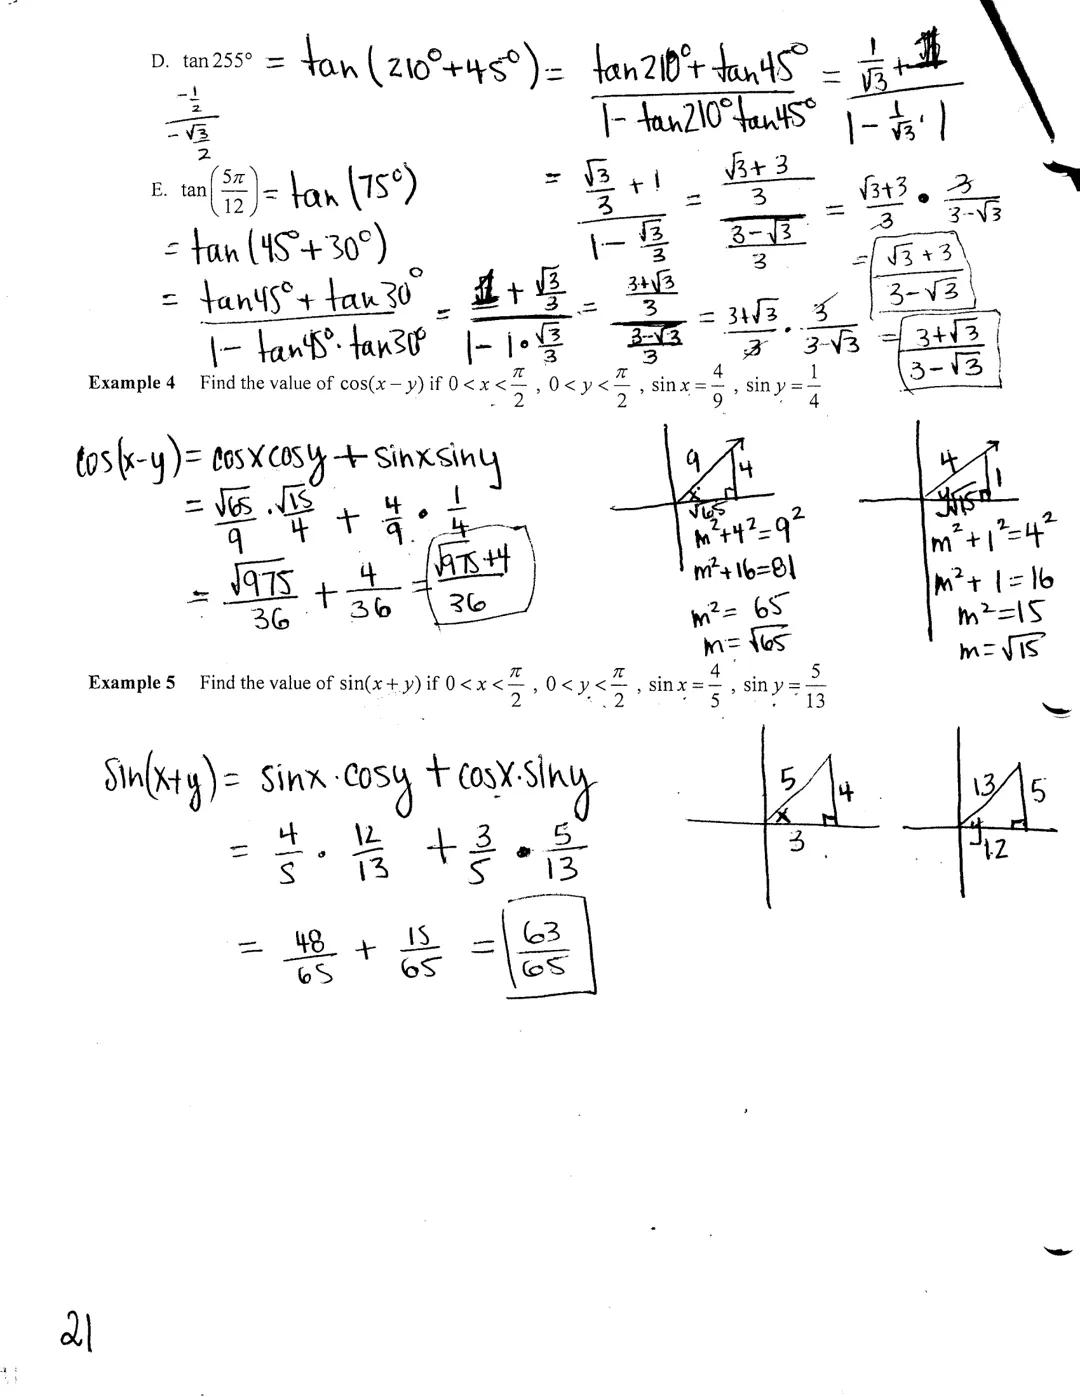 D. tan 255° = tan(210°+45°) = (tan210°+tan45°)/(1-tan210°tan45°) = (1/√3 + 1)/(1 - 1/√3 · 1)
(-1/2)/(-√3/2)
= (√3/3 + 1)/(1 - √3/3) = ((√3+3)/3)/((3-√3)/3) = (√3+3)/3 · 3/(3-√3)
= (√3+3)/(3-√3)
E. tan(5π/12) = tan(75°)
= tan(45°+30°)
= (tan45°+tan30°)/(1-tan45°·tan30°) = (1+√3/3)/(1-1·√3/3) = ((3+√3)/3)/((3-√3)/3) = (3+√3)/3 · 3/(3-√3) = (3+√3)/(3-√3)
Example 4 Find the value of cos(x-y) if 0<x<π/2, 0<y<π/2, sin x = 4/9, sin y = 1/4
cos(x-y) = cosxcosy + sinxsiny
= √65/9 · √15/4 + 4/9 · 1/4
= √975/36 + 4/36 = (√975+4)/36
9 4 x √65
m²+4²=9²
m²+16=81
m²=65
m=√65
4 1 y √15
m²+1²=4²
m²+1=16
m²=15
m=√15
Example 5 Find the value of sin(x+y) if 0<x<π/2, 0<y<π/2, sin x = 4/5, sin y = 5/13
sin(x+y) = sinx·cosy + cosx·siny
= 4/5 · 12/13 + 3/5 · 5/13
= 48/65 + 15/65 = 63/65
5 4 x 3
13 5 y 12
21